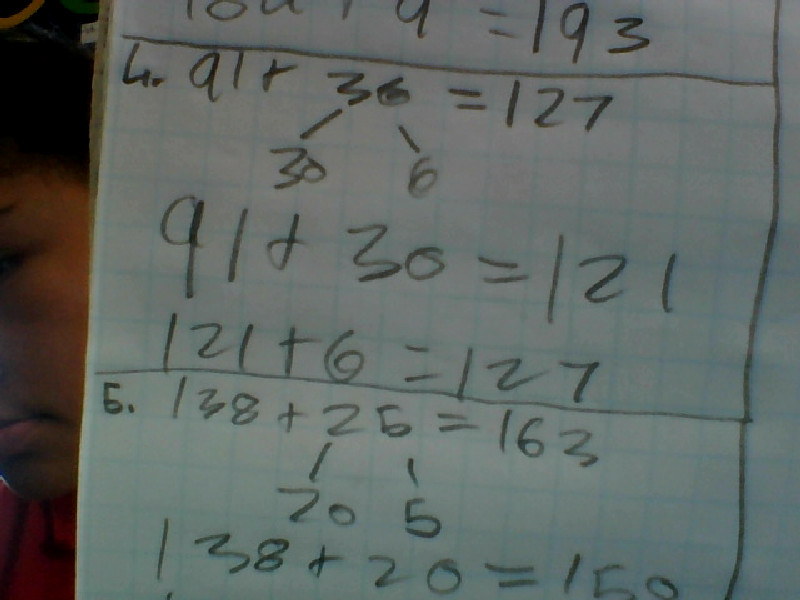 = 193
4. 91 + 36 = 127
30 6
91 + 30 = 121
121 + 6 = 127
5. 138 + 25 = 163
20 5
138 + 20 = 158